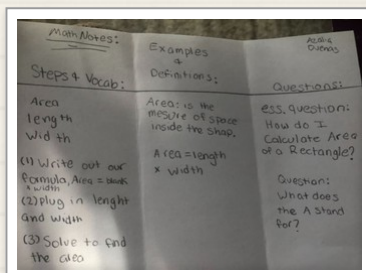 Math Notes:
Steps & Vocab:
Area
length
width
(1) Write out our
formula, Area =
x width
(2) Plug in lenght
and width
(3) Solve to find
the area
Examples
&
Definitions:
Area: is the
mesure of space
inside the shap.
Area = length
x width
Questions:
ess. question:
How do I
Calculate Area
of a Rectangle?
Question:
What does
the A stand
for?